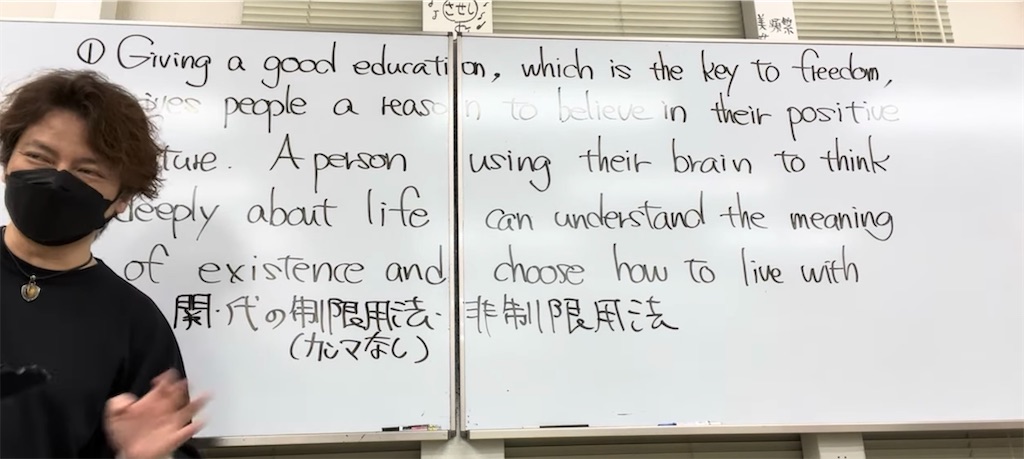 させし
美 頻繁
① Giving a good education, which is the key to freedom,
people a reason to believe in their positive
ture. A person using their brain to think
deeply about life can understand the meaning
of existence and choose how to live with
関・代の制限用法・非制限用法
(カンマなし)